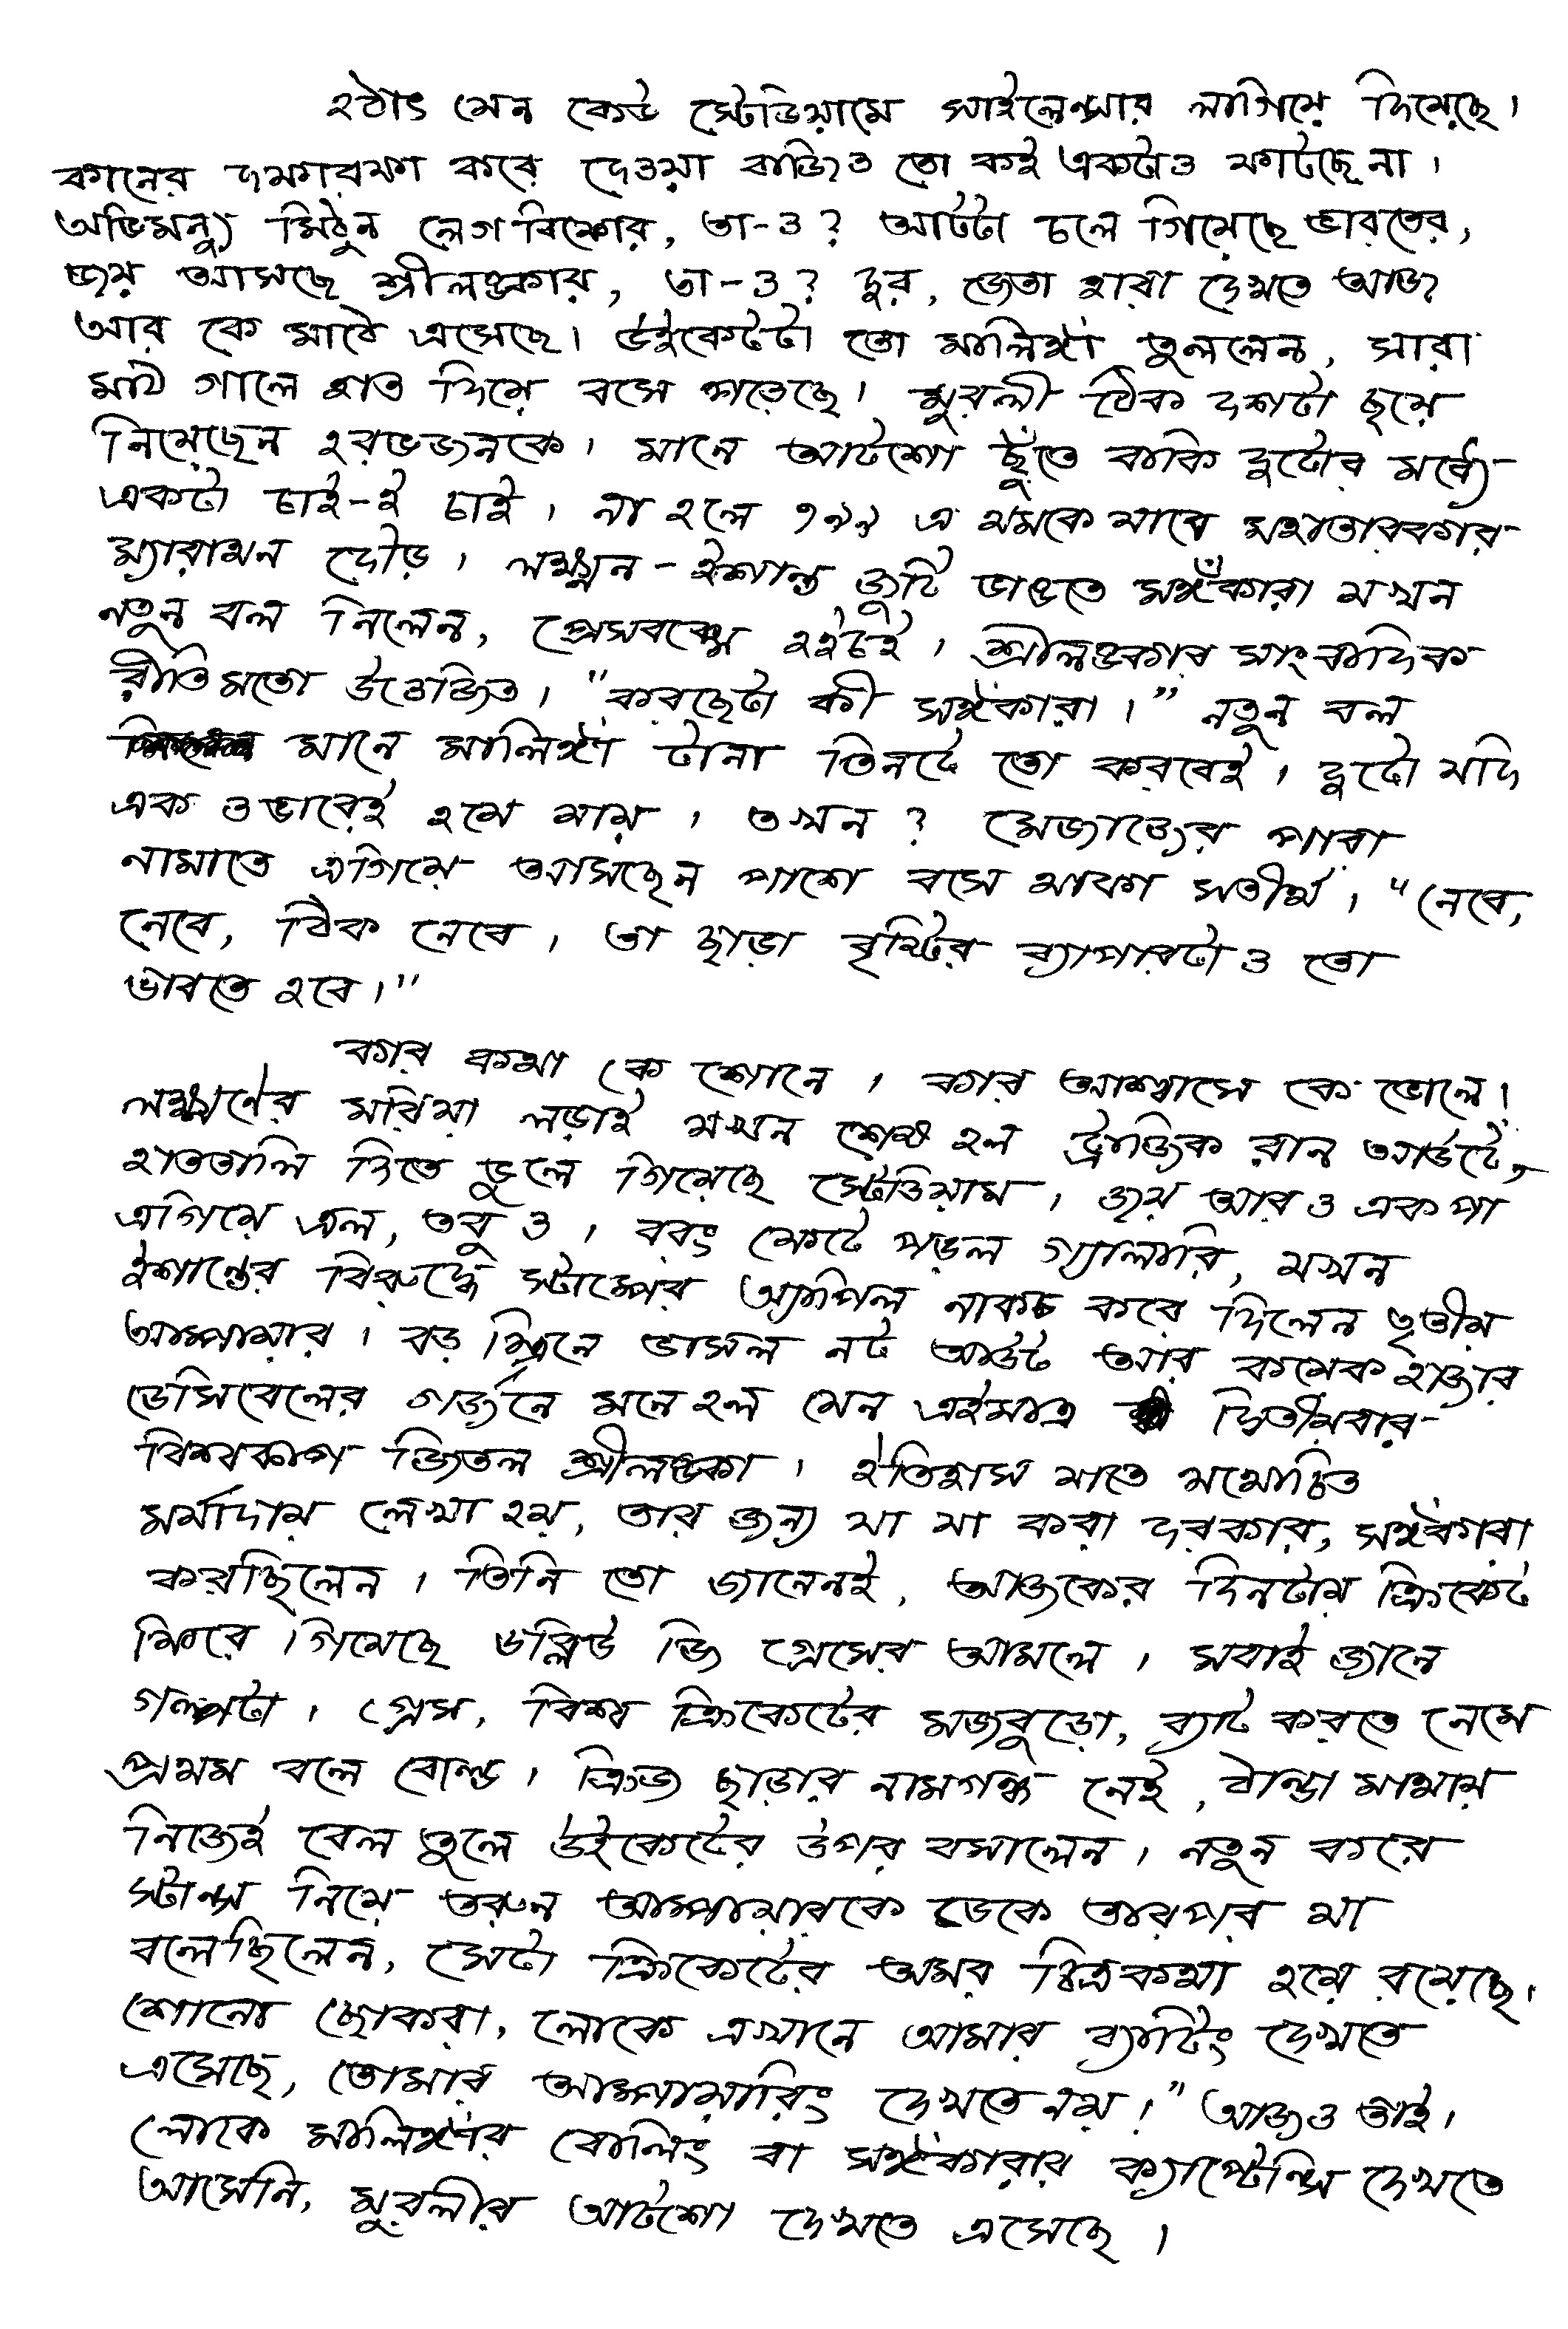 হঠাৎ যেন কেউ স্টেডিয়ামে সাইলেন্সার লাগিয়ে দিয়েছে।
কানের দফারফা করে দেওয়া বাজিও তো কই একটাও ফাটছে না।
অভিমন্যু মিঠুন লেগ বিফোর, তা-ও? আটটা চলে গিয়েছে ভারতের,
জয় আসছে শ্রীলঙ্কার, তা-ও? দুর, জেতা হারা দেখতে আজ
আর কে মাঠে এসেছে। উইকেটটা তো মালিঙ্গা তুললেন, সারা
মাঠ গালে হাত দিয়ে বসে পড়েছে। মুরলী ঠিক দশটা ছয়ে
নিয়েছেন হরভজনকে। মানে আটশো ছুঁতে বাকি দুটোর মধ্যে
একটা চাই-ই চাই। না হলে ৭৯৯ এ থমকে যাবে মহাতারকার
ম্যারাথন দৌড়। লক্ষ্মন-ইশান্ত জুটি ভাঙতে সঙ্গকারা যখন
নতুন বল নিলেন, প্রেসবক্সে হইচই। শ্রীলঙ্কার সাংবাদিক
রীতিমতো উত্তেজিত। "করছেটা কী সঙ্গকারা।" নতুন বল
মানে মালিঙ্গা টানা তিনটে তো করবেই। দুটো যদি
এক ওভারেই হয়ে যায়। তখন? মেজাজের পারা
নামাতে এগিয়ে আসছেন পাশে বসে থাকা সতীর্থ। "নেবে,
নেবে, ঠিক নেবে। তা ছাড়া বৃষ্টির ব্যাপারটাও তো
ভাবতে হবে।"
কার কথা কে শোনে। কার আশ্বাসে কে ভোলে!
লক্ষ্মণের মরিয়া লড়াই যখন শেষ হল ট্র্যাজিক রান আউটে,
হাততালি দিতে ভুলে গিয়েছে স্টেডিয়াম। জয় আরও এক পা
এগিয়ে এল, তবুও। বরং ফেটে পড়ল গ্যালারি, যখন
ইশান্তের বিরুদ্ধে স্টাম্পের অ্যাপিল নাকচ করে দিলেন তৃতীয়
আম্পায়ার। বড় স্ক্রিনে ভাসল নট আউট আর কয়েক হাজার
ডেসিবেলের গর্জনে মনে হল যেন এইমাত্র দ্বিতীয়বার
বিশ্বকাপ জিতল শ্রীলঙ্কা। ইতিহাস যাতে যথোচিত
মর্যাদায় লেখা হয়, তার জন্য যা যা করা দরকার, সঙ্গকারা
করছিলেন। তিনি তো জানেনই, আজকের দিনটায় ক্রিকেট
ফিরে গিয়েছে ডব্লিউ জি গ্রেসের আমলে। সবাই জানে
গল্পটা। গ্রেস, বিশ্ব ক্রিকেটের মজবুড়ো, ব্যাট করতে নেমে
প্রথম বলে বোল্ড। ক্রিজ ছাড়ার নামগন্ধ নেই, ঠান্ডা মাথায়
নিজেই বেল তুলে উইকেটের উপর বসালেন। নতুন করে
স্টান্স নিয়ে তরুন আম্পায়ারকে ডেকে তারপর যা
বলেছিলেন, সেটা ক্রিকেটের অমর চিত্রকথা হয়ে রয়েছে।
শোনো ছোকরা, লোকে এখানে আমার ব্যাটিং দেখতে
এসেছে, তোমার আম্পায়ারিং দেখতে নয়।" আজও তাই।
লোকে মালিঙ্গার বোলিং বা সঙ্গকারার ক্যাপ্টেন্সি দেখতে
আসেনি, মুরলীর আটশো দেখতে এসেছে।